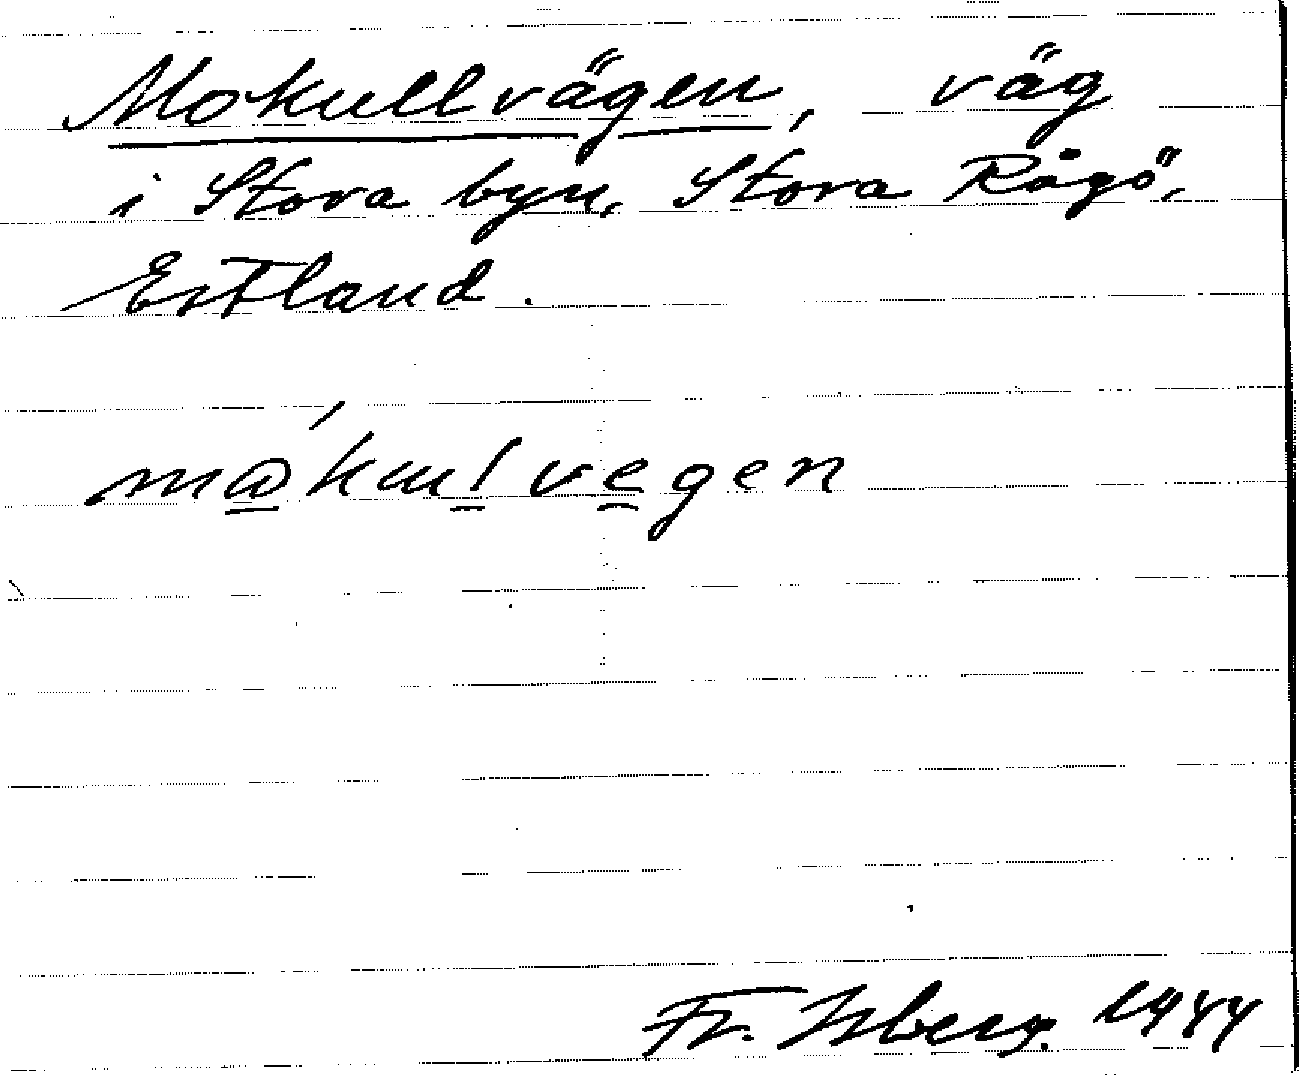 Mokullvägen, väg
i Stora byn, Stora Rågö,
Estland.
må̱´kul̲ve̲gen
Fr. Isberg. 1944